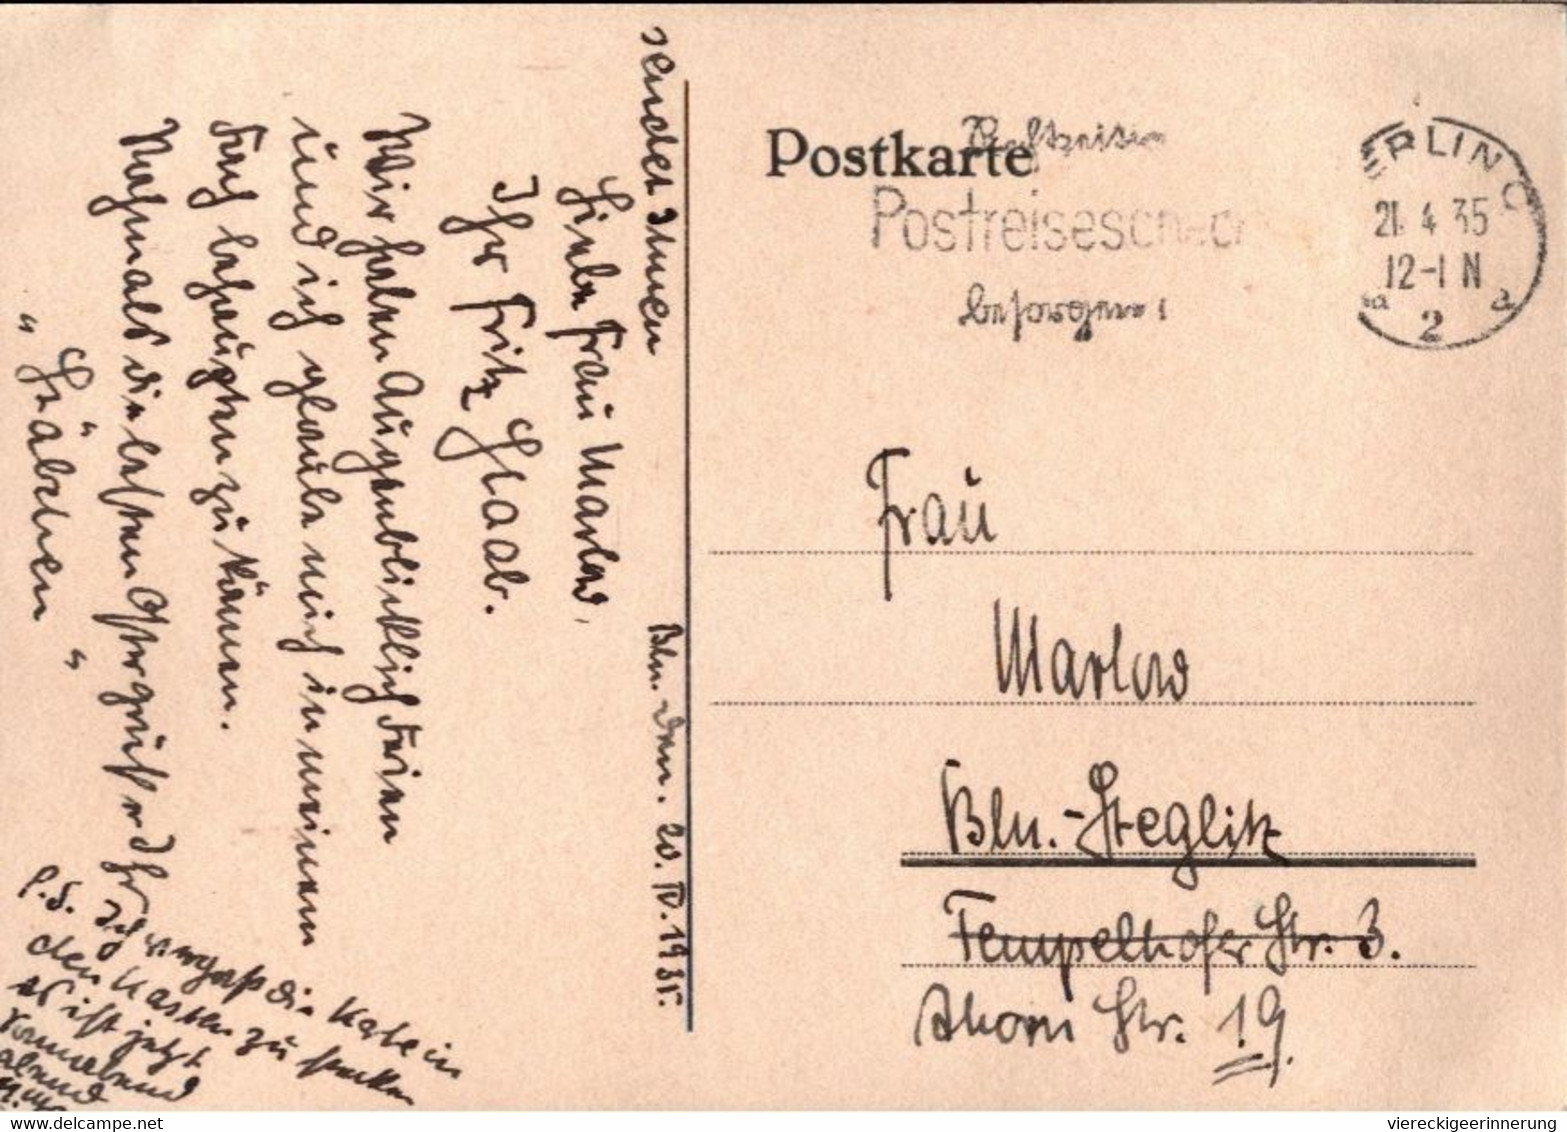 sendet Ihnen
Bln. den. 20. IV. 1935.
Liebe Frau Marlow,
Ihr Fritz Glaab.
Wir haben Augenblicklich Ferien
und ich glaube mich in meinem
Fach behaupten zu können.
Nochmals die besten Ostergrüße Ihr
„Gläbchen“
P.S. Ich vergaß die Karte in
den Kasten zu stecken
es ist jetzt
abend
Postkarte
Rechtzeitig
Postreisescheck
besorgen!
BERLIN C
21.4.35
12-1 N
2
a
Frau
Marlow
Bln.-Steglitz
Tempelhofer Str. 3.
Ahorn Str. 19.
www.delcampe.net
viereckigeerinnerung